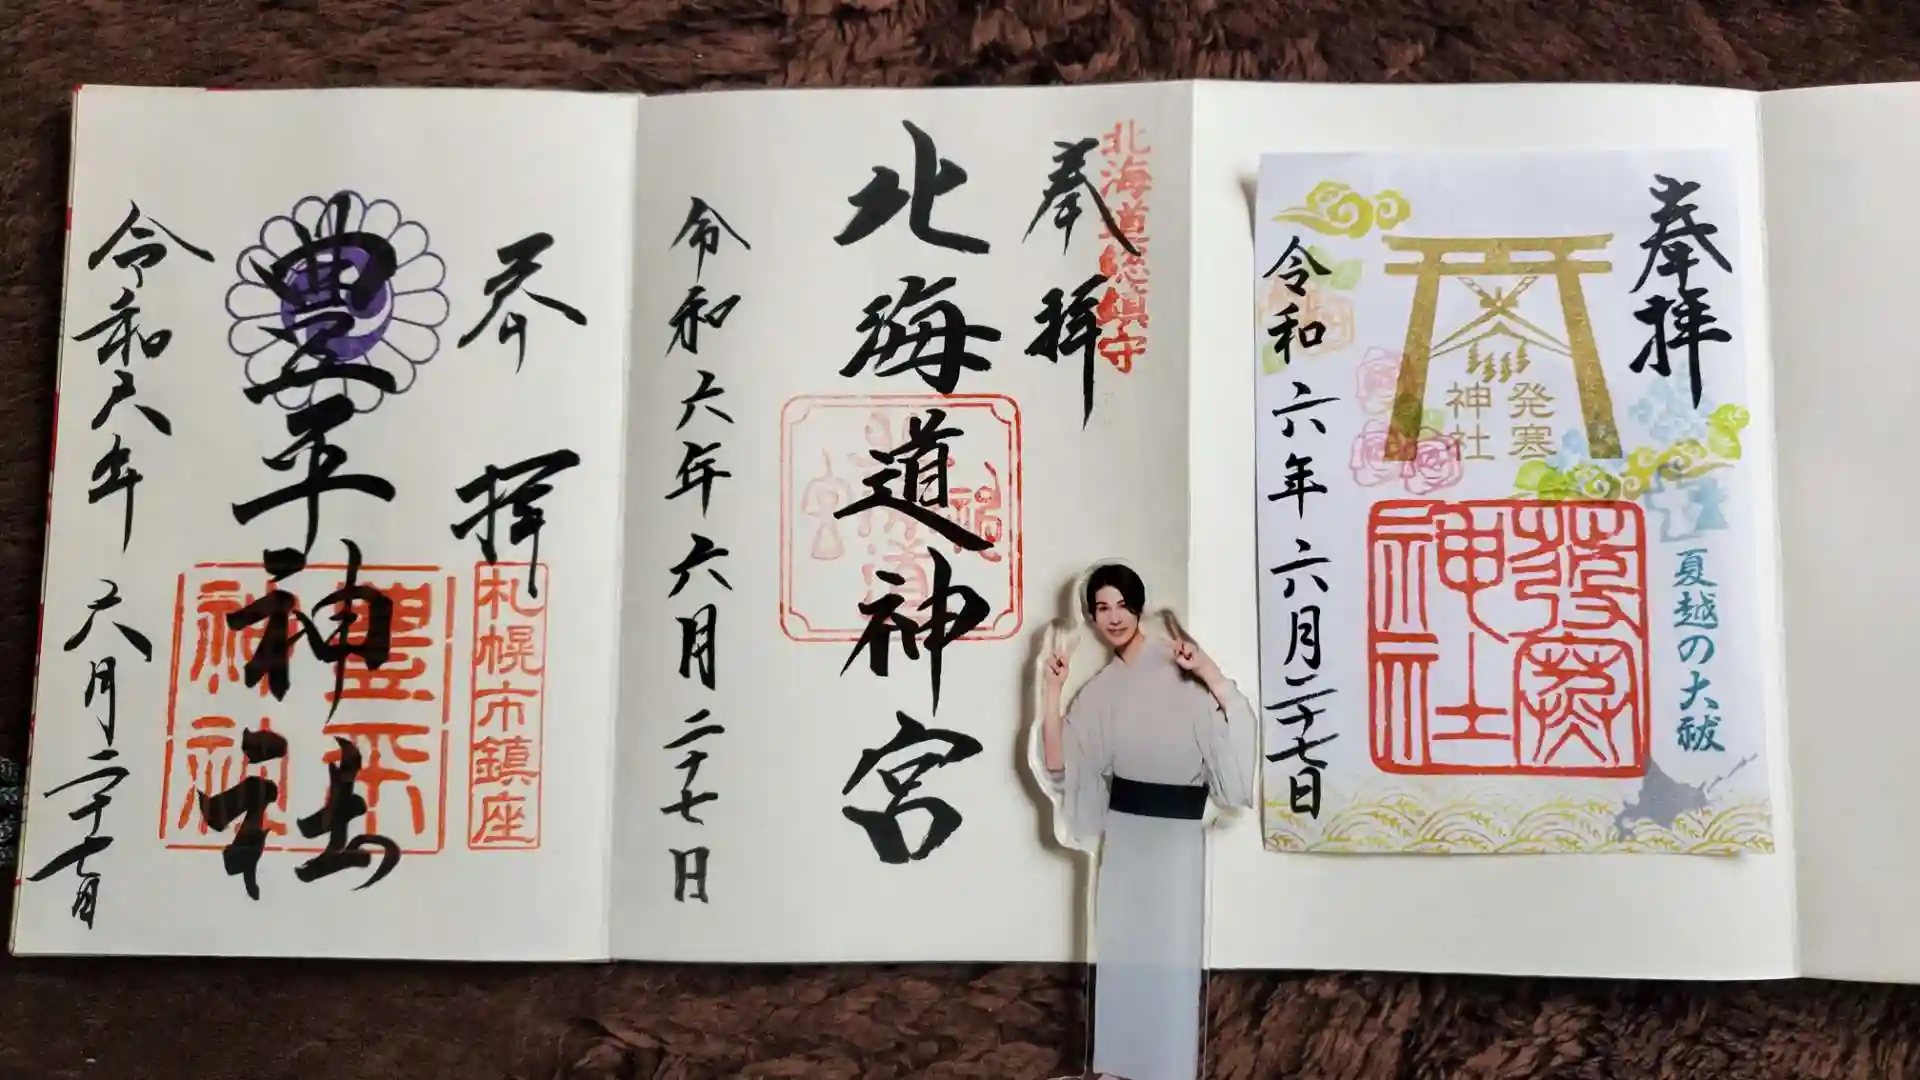 奉拝
発寒
神社
發寒
神社
夏越の大祓
令和六年六月二十七日
北海道総鎮守
奉拝
北海道神宮
令和六年六月二十七日
奉拝
札幌市鎮座
豊平神社
豐平
神社
令和六年六月二十七日